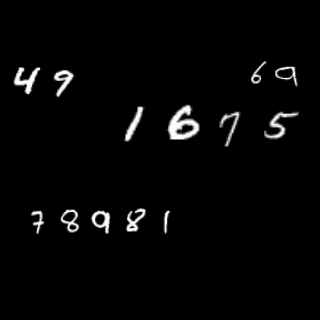 49
69
1675
78981